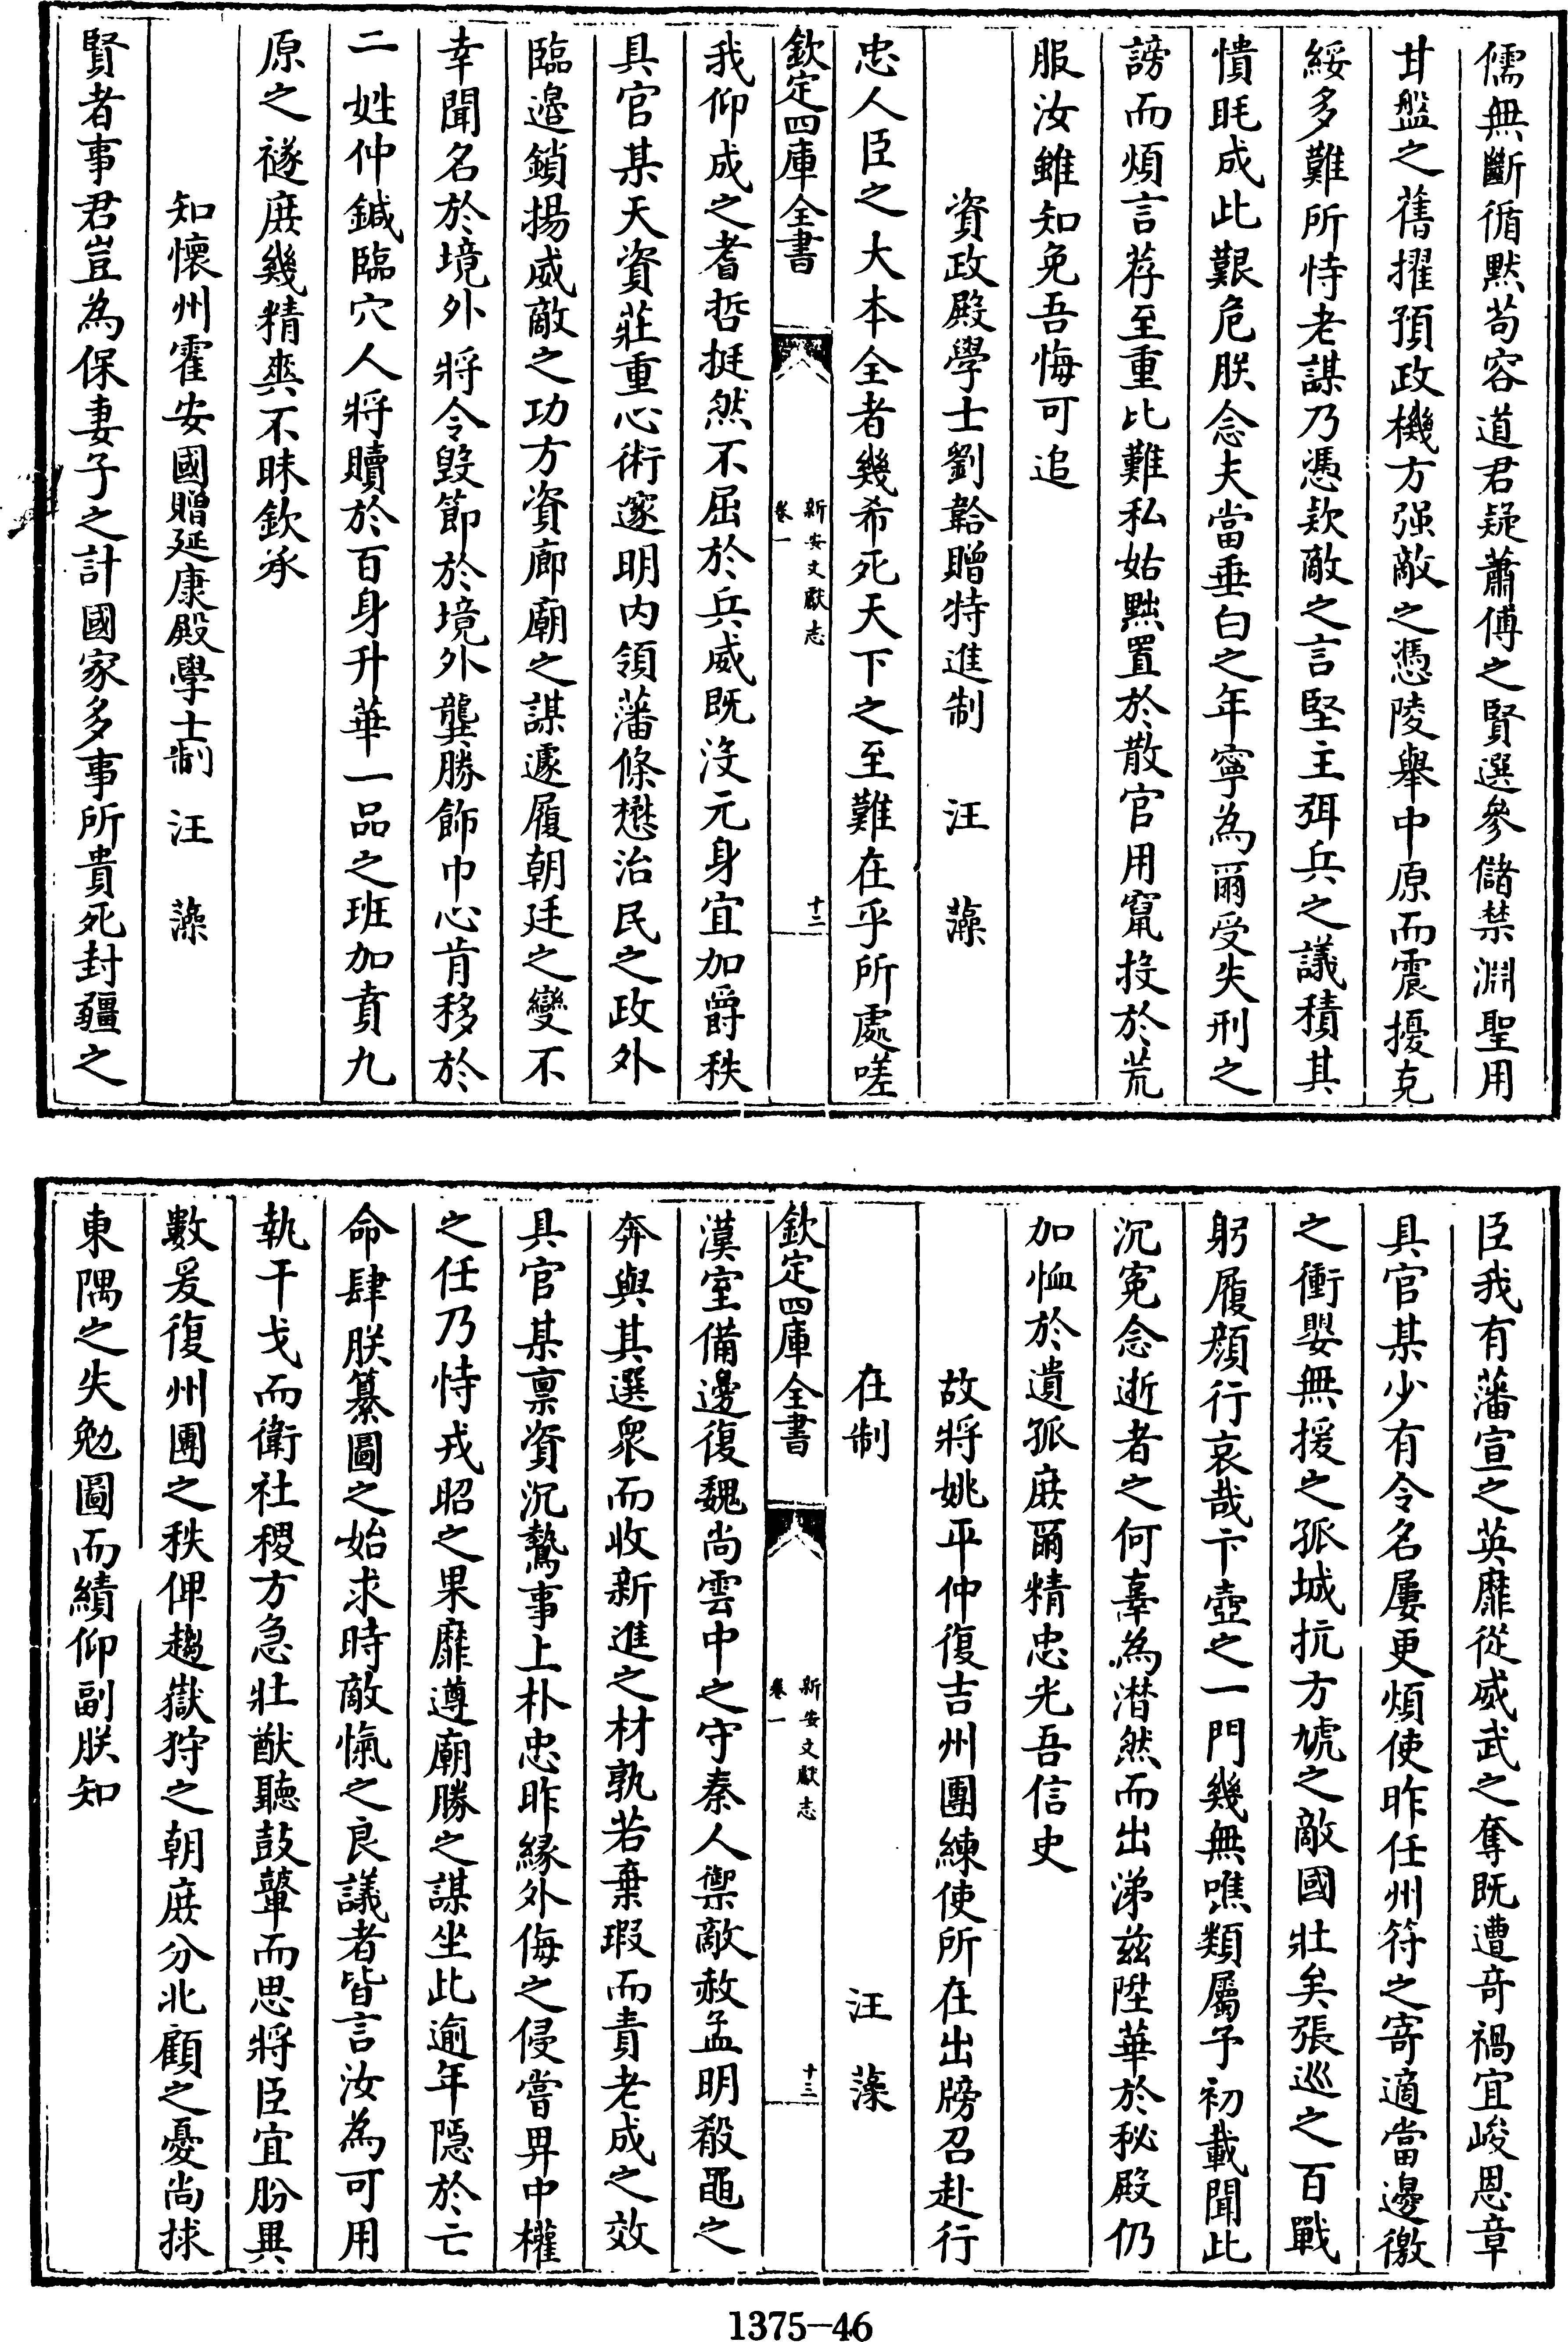 儒無斷循黙苟容道君疑蕭傅之賢選參儲禁淵聖用
甘盤之舊擢預政機方强敵之憑陵舉中原而震擾克
綏多難所恃老謀乃憑欵敵之言堅主弭兵之議積其
憒眊成此艱危朕念夫當垂白之年寧為爾受失刑之
謗而煩言荐至重比難私姑黜置於散官用竄投於荒
服汝雖知免吾悔可追
資政殿學士劉韐贈特進制　汪　藻
忠人臣之大本全者幾希死天下之至難在乎所處嗟
欽定四庫全書　新安文獻志　卷一　十二
我仰成之耆哲挺然不屈於兵威既沒元身宜加爵秩
具官某天資莊重心術邃明内領藩條懋治民之政外
臨邉鎖揚威敵之功方資廊廟之謀遽履朝廷之變不
幸聞名於境外將令毀節於境外龔勝飾巾心肯移於
二姓仲鍼臨穴人將贖於百身升華一品之班加賁九
原之禭庶幾精爽不昧欽承
知懷州霍安國贈延康殿學士制　汪　藻
賢者事君豈為保妻子之計國家多事所貴死封疆之
臣我有藩宣之英靡從威武之奪既遭竒禍宜峻恩章
具官某少有令名屢更煩使昨任州符之寄適當邊徼
之衝嬰無援之孤城抗方虓之敵國壯矣張巡之百戰
躬履顔行哀哉卞壺之一門幾無噍類屬予初載聞此
沉寃念逝者之何辜為潸然而出涕兹陞華於秘殿仍
加恤於遺孤庶爾精忠光吾信史
故將姚平仲復吉州團練使所在出牓召赴行
在制　汪　藻
欽定四庫全書　新安文獻志　卷一　十三
漢室備邊復魏尚雲中之守秦人禦敵赦孟明殽黽之
奔與其選衆而收新進之材孰若棄瑕而責老成之效
具官某禀資沉鷙事上朴忠昨緣外侮之侵嘗畀中權
之任乃恃戎昭之果靡遵廟勝之謀坐此逾年隠於亡
命肆朕纂圖之始求時敵愾之良議者皆言汝為可用
執干戈而衛社稷方急壯猷聽鼓鼙而思將臣宜肦異
數爰復州團之秩俾趨嶽狩之朝庶分北顧之憂尚捄
東隅之失勉圖而績仰副朕知
1375-46